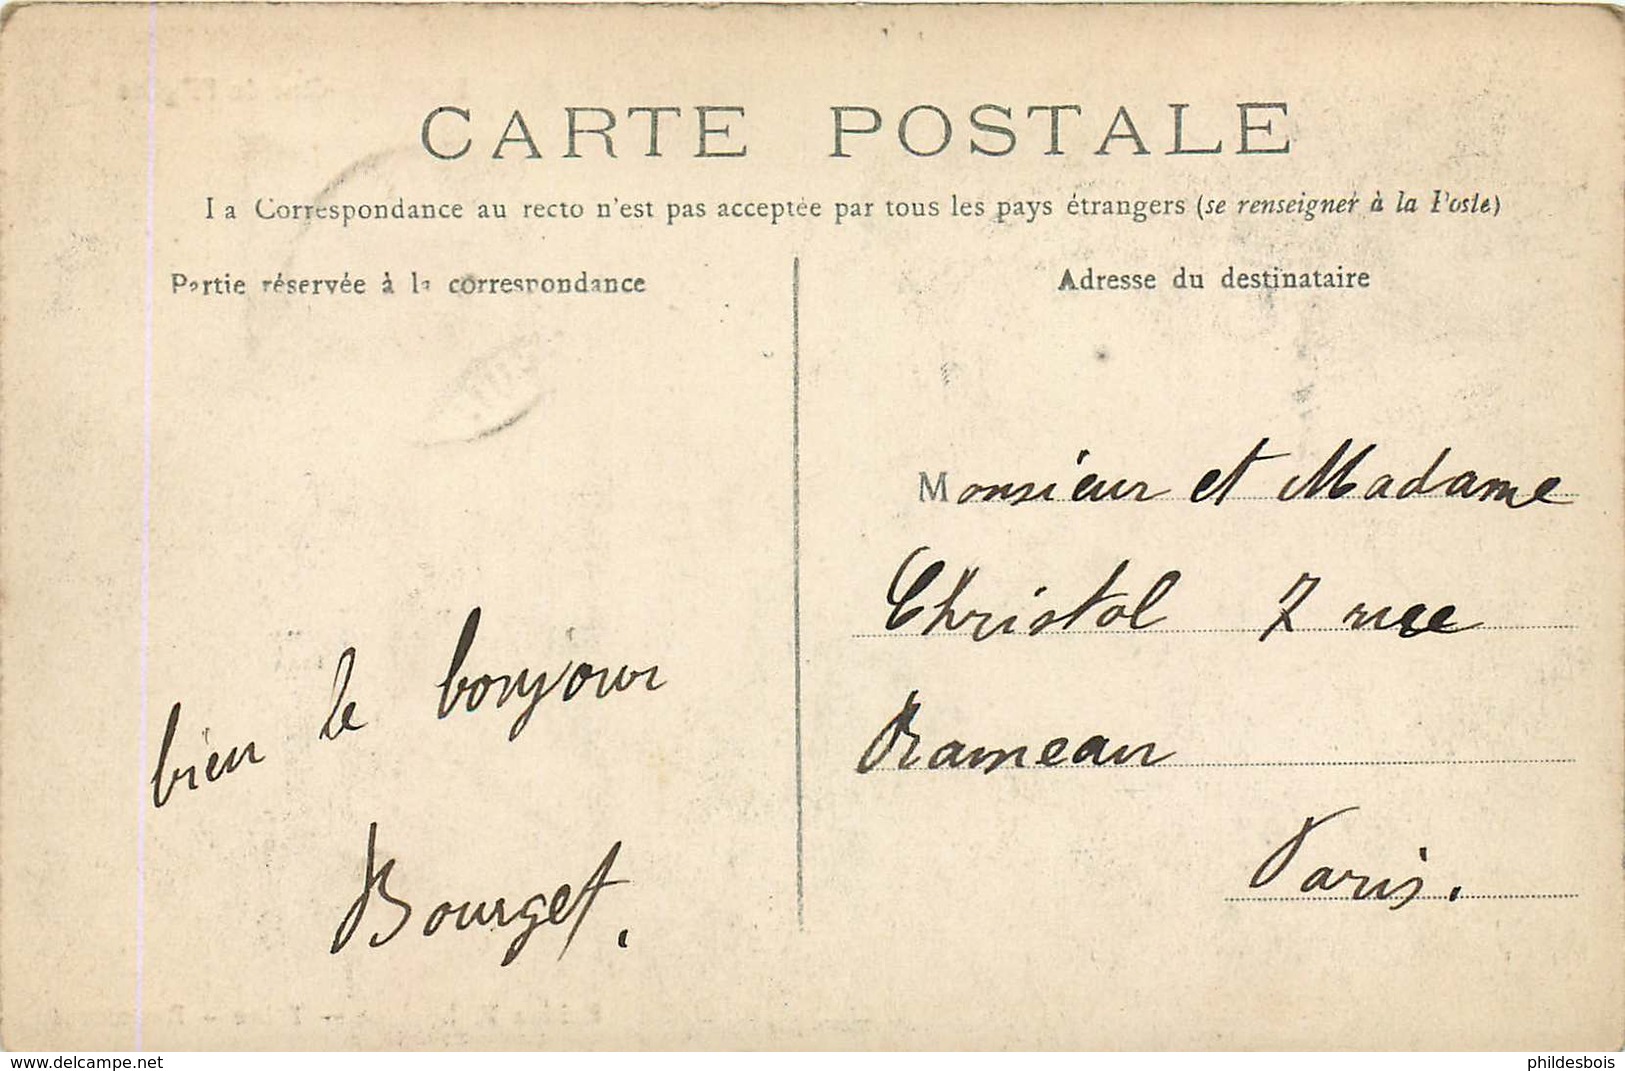 CARTE POSTALE
La Correspondance au recto n'est pas acceptée par tous les pays étrangers (se renseigner à la Poste)
Partie réservée à la correspondance
Adresse du destinataire
bien le bonjour
Bourget.
Monsieur et Madame
Christol 7 rue
Rameau
Paris.
www.delcampe.net
phildesbois